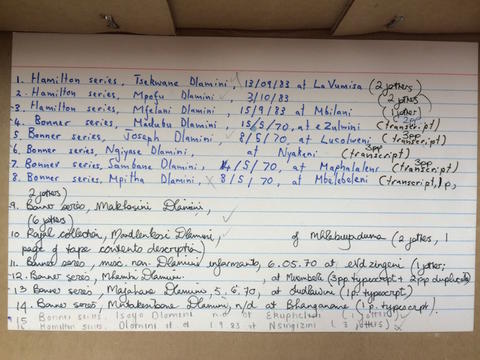 1. Hamilton series, Tsekwane Dlamini, 13/09/83 at LaVumisa (2 jotters)
2. Hamilton series, Mpofu Dlamini, 3/10/83 (2 jotters)
3. Hamilton series, Mfelani Dlamini, 15/9/83 at Mbilani (1 jotter)
4. Bonner series, Madubu Dlamini, 15/5/70, at eZulwini (transcript)
5. Bonner series, Joseph Dlamini, 8/5/70, at Lusolweni (3pp transcript)
6. Bonner series, Ngiyase Dlamini, at Nyakeni (3pp transcript)
7. Bonner series, Sambane Dlamini, 4/5/70, at Maphalaleni (3pp transcript)
8. Bonner series, Mpitha Dlamini, 8/5/70, at Mbelebeleni (transcript, 1p,
2 jotters)
9. Bonner series, Makhosini Dlamini,
(6 jotters)
10. Royal collection, Mandlenkosi Dlamini, of (2 jotters, 1
page of tape contents description)
11. Bonner series, misc. non-Dlamini informants, 6.05.70 at eNdzingeni (1 jotter;
12. Bonner series, Mhambi Dlamini, at (3pp typescript + 2pp duplicate)
13. Bonner series, Majahane Dlamini, 5.6.70, at Dudlawini (1p. typescript)
14. Bonner series, Dlamini, n/d at Bhanganane (1p. typescript.
15 Bonner series Isaya Dlamini n.d at Ekupheleni (1 jotters)
16 Hamilton series, Dlamini et al 1 9 83 at Nsingizini (3 jotters)